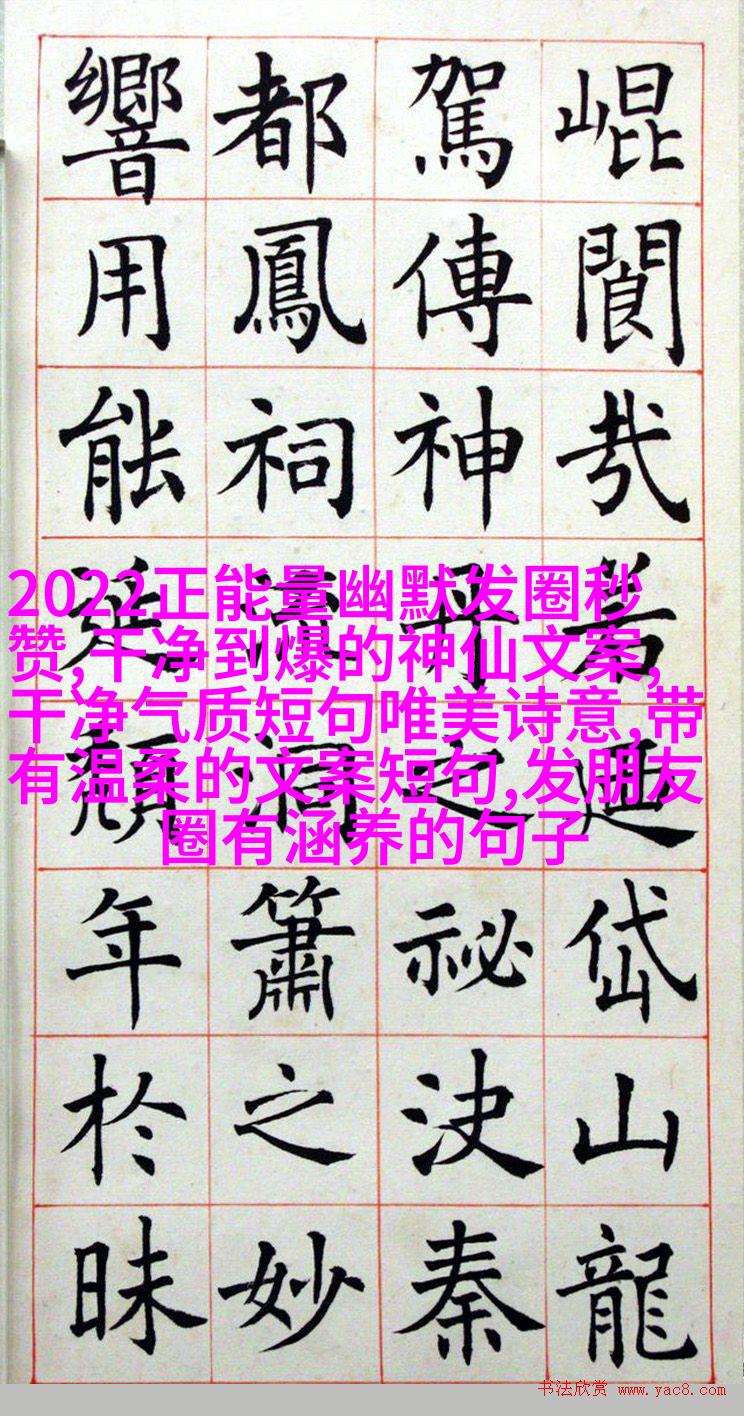 崐閬若迺岱山龍
駕傳神丹之祕決秦
都鳳祠洞簫之妙
響用能延頹年於昧
2022正能量幽默发圈秒
赞,干净到爆的神仙文案,
干净气质短句唯美诗意,带
有温柔的文案短句,发朋友
圈有涵养的句子
书法欣赏 www.yac8.com